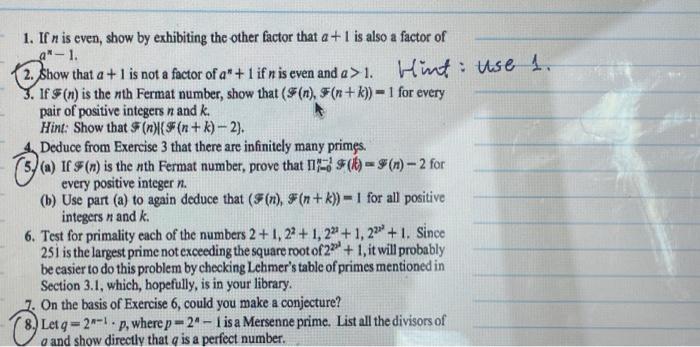 1. If n is even, show by exhibiting the other factor that a + 1 is also a factor of
aⁿ − 1.
2. Show that a + 1 is not a factor of aⁿ + 1 if n is even and a > 1. Hint: use 1.
3. If ℱ(n) is the nth Fermat number, show that (ℱ(n), ℱ(n + k)) = 1 for every
pair of positive integers n and k.
Hint: Show that ℱ(n)|{ℱ(n + k) − 2}.
4. Deduce from Exercise 3 that there are infinitely many primes.
5. (a) If ℱ(n) is the nth Fermat number, prove that Πⁿ⁻¹ ℱ(k) = ℱ(n) − 2 for
every positive integer n.
(b) Use part (a) to again deduce that (ℱ(n), ℱ(n + k)) = 1 for all positive
integers n and k.
6. Test for primality each of the numbers 2 + 1, 2² + 1, 2^2² + 1, 2^2^2² + 1. Since
251 is the largest prime not exceeding the square root of + 1, it will probably
be easier to do this problem by checking Lehmer's table of primes mentioned in
Section 3.1, which, hopefully, is in your library.
7. On the basis of Exercise 6, could you make a conjecture?
8. Let q = 2ⁿ⁻¹ · p, where p = 2ⁿ − 1 is a Mersenne prime. List all the divisors of
q and show directly that q is a perfect number.